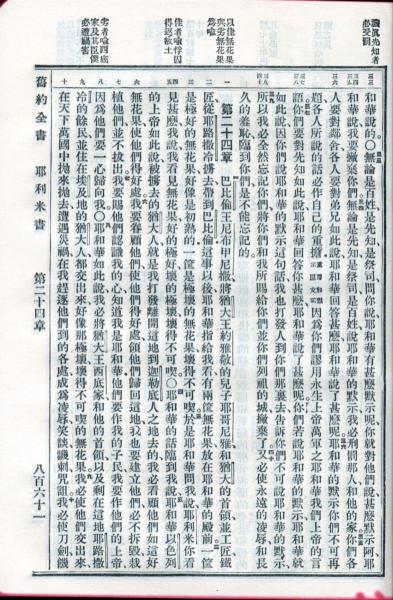 論眞先知者必受罰
以佳無花果與劣無花果爲喩
佳者喩俘囚得返故土
劣者喩西底家及其臣僕必遭禍害
和華說的〇無論是百姓是先知是祭司問你說耶和華有甚麽默示呢你就對他們說甚麽默示阿耶
和華說我要撇棄你們無論是先知是祭司是百姓說耶和華的默示我必刑罰那人和他的家你們各
人要對鄰舍各人要對弟兄如此說耶和華回答甚麽耶和華說了甚麽耶和華的默示你們不可再
題各人所說的話必作自己的重擔因爲你們謬用永生上帝萬軍之耶和華我們上帝的言
語你們要對先知如此說耶和華回答你甚麽耶和華說了甚麽呢你們若說耶和華的默示耶和華就
如此說因你們說耶和華的默示這句話我也打發人到你們那裏去告訴你們不可說耶和華的默示
所以我必全然忘記你們將你們和我所賜給你們並你們列祖的城撇棄了又必使永遠的凌辱和長
久的羞恥臨到你們是不能忘記的
第二十四章
巴比倫王尼布甲尼撒將猶大王約雅敬的兒子耶哥尼雅和猶大的首領並工匠鐵
匠從耶路撒冷擄去帶到巴比倫這事以後耶和華指給我看有兩筐無花果放在耶和華的殿前一筐
是極好的無花果好像是初熟的一筐是極壞的無花果壞得不可喫於是耶和華問我說耶利米你看
見甚麽我說我看見無花果好的極好壞的極壞壞得不可喫〇耶和華的話臨到我說耶和華以色列
的上帝如此說被擄去的猶大人就是我打發離開這地到迦勒底人之地去的我必看顧他們如這好
無花果使他們得好處我要眷顧他們使他們得好處領他們歸回這地我也要建立他們必不拆毀栽
植他們並不拔出我要賜他們認識我的心知道我是耶和華他們要作我的子民我要作他們的上帝
因爲他們要一心歸向我〇耶和華如此說我必將猶大王西底家和他的首領以及剩在這地耶路撒
冷的餘民並住在埃及地的猶大人都交出來好像那極壞壞得不可喫的無花果我必使他們交出來
在天下萬國中拋來拋去遭遇災禍在我趕逐他們到的各處成爲凌辱笑談譏刺咒詛我必使刀劍饑
舊約全書　耶利米書　第二十四章　八百六十一